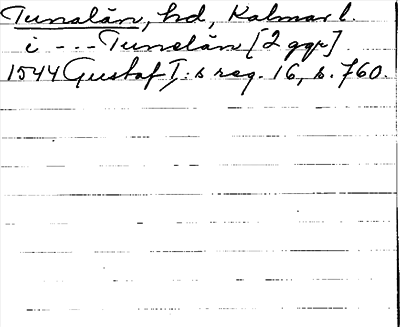 Tunalän, hd, Kalmar l.
i --- Tunelän [2 ggr]
1544 Gustaf I:s reg. 16, s. 760.